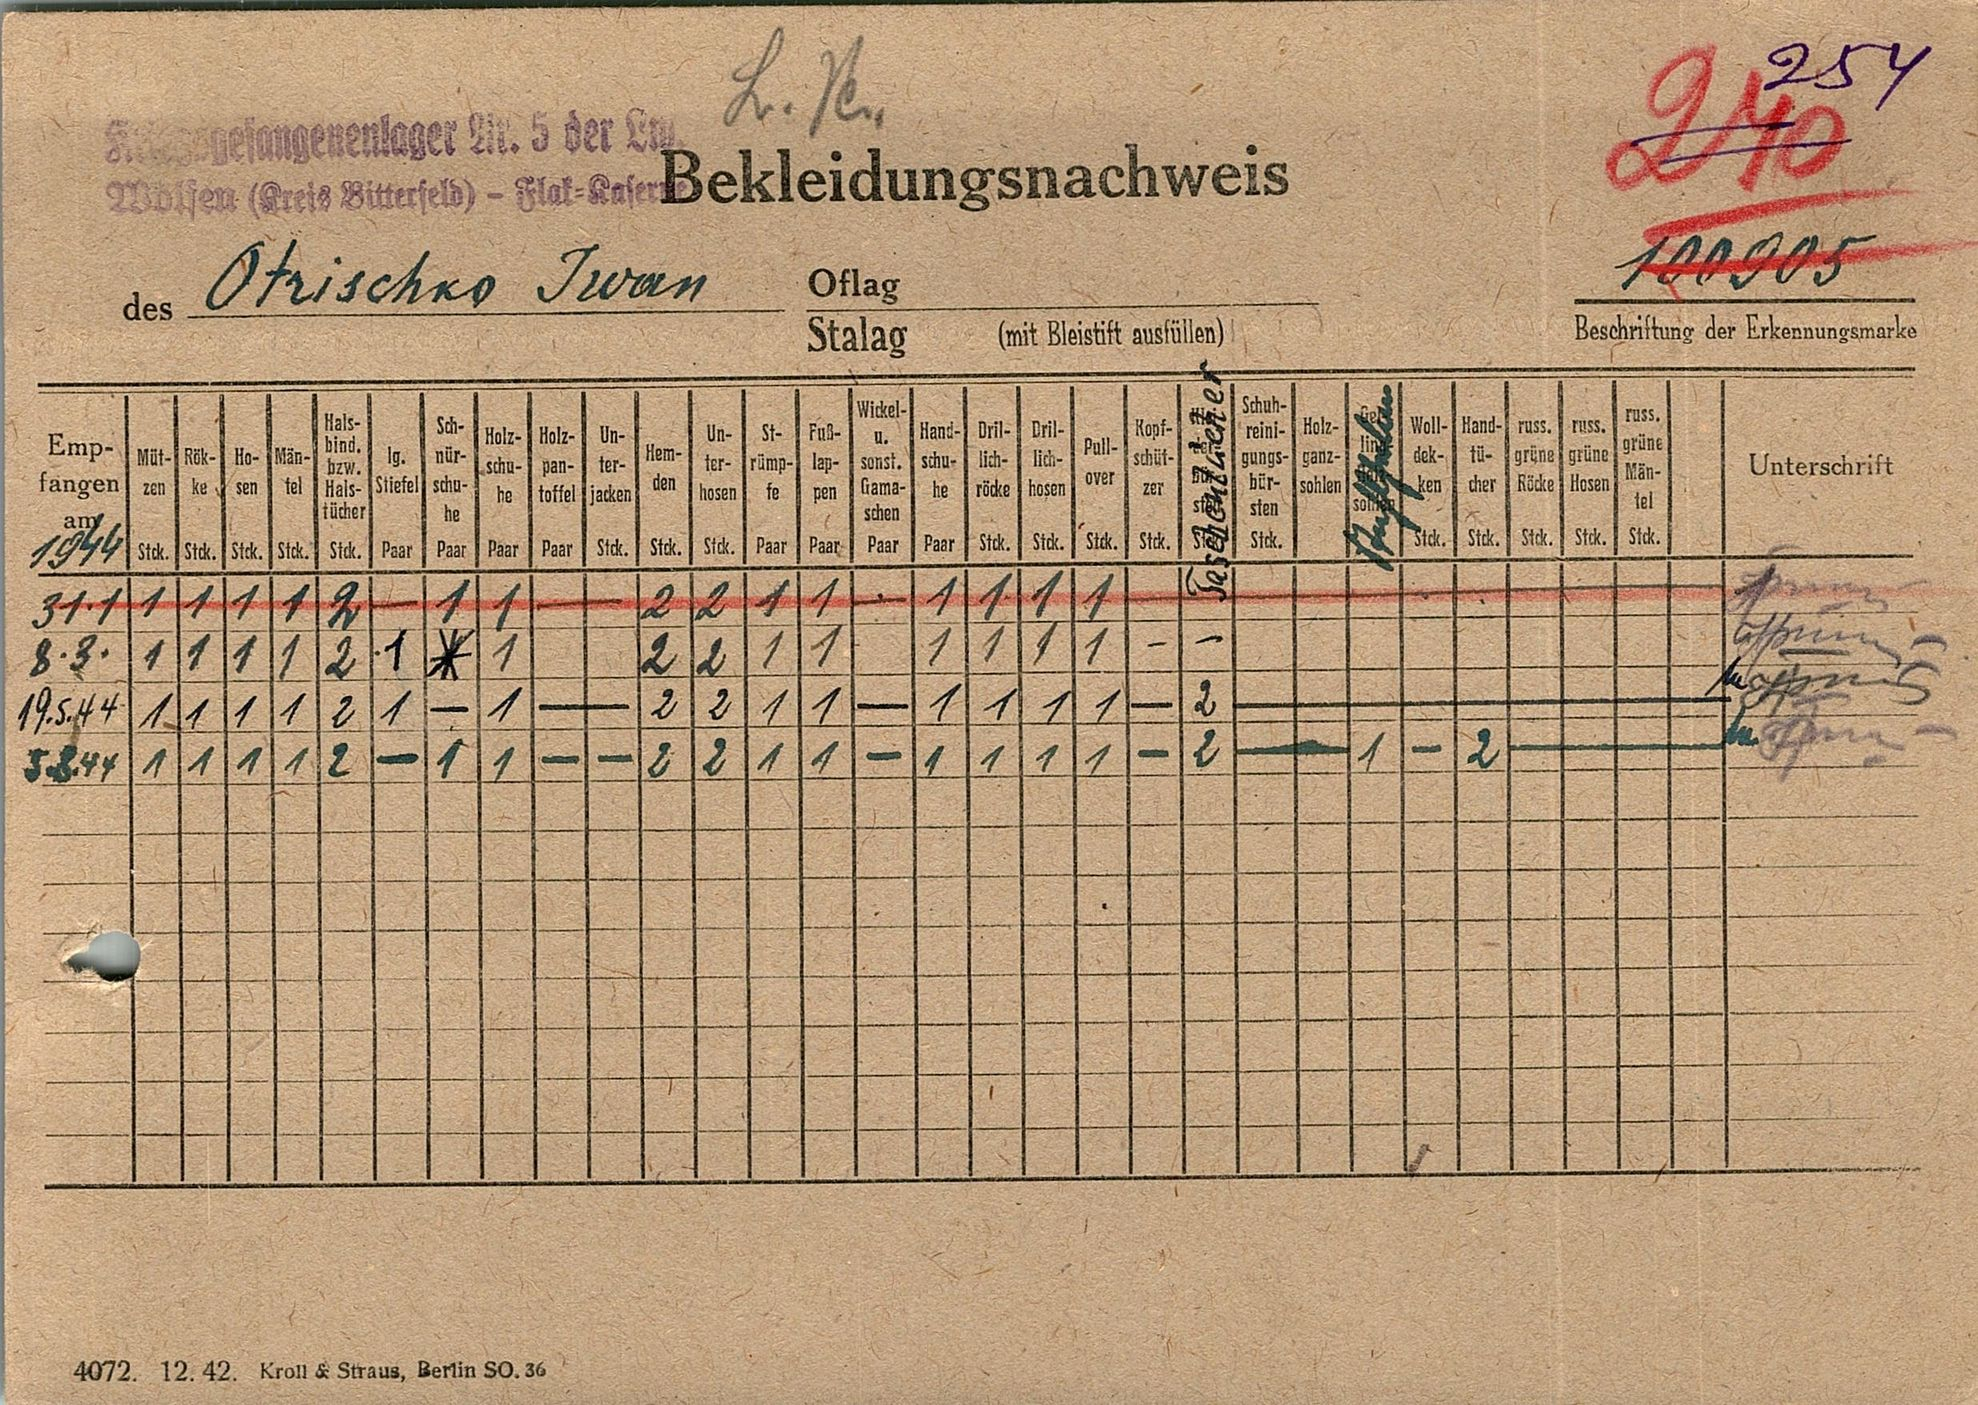 Lr. Kr.
254
240
Kriegsgefangenenlager Nr. 5 der Lw.
Wolfen (Kreis Bitterfeld) – Flak-Kaserne
Bekleidungsnachweis
100905
des Otrischko Iwan
Oflag
Stalag (mit Bleistift ausfüllen)
Beschriftung der Erkennungsmarke
Empfangen am 1944
Mützen Stck.
Rökke Stck.
Hosen Stck.
Mäntel Stck.
Halsbind. bzw. Halstücher Stck.
lg. Stiefel Paar
Schnürschuhe Paar
Holzschuhe Paar
Holzpantoffel Paar
Unterjacken Stck.
Hemden Stck.
Unterhosen Stck.
Strümpfe Paar
Fußlappen Paar
Wickel- u. sonst. Gamaschen Paar
Handschuhe Paar
Drillichröcke Stck.
Drillichhosen Stck.
Pullover Stck.
Kopfschützer Stck.
Taschentücher
Schuhreinigungsbürsten Stck.
Holzganzsohlen
Wolldekken Stck.
Handtücher Stck.
russ. grüne Röcke Stck.
russ. grüne Hosen Stck.
russ. grüne Mäntel Stck.
Unterschrift
31.1 1 1 1 1 2 — 1 1 — 2 2 1 1 — 1 1 1 1
8.3. 1 1 1 1 2 1 1 2 2 1 1 1 1 1 1 - -
19.5.44 1 1 1 1 2 1 — 1 — 2 2 1 1 — 1 1 1 1 — 2 —
5.8.44 1 1 1 1 2 — 1 1 — — 2 2 1 1 — 1 1 1 1 — 2 — 1 — 2 —
4072. 12. 42. Kroll & Straus, Berlin SO. 36